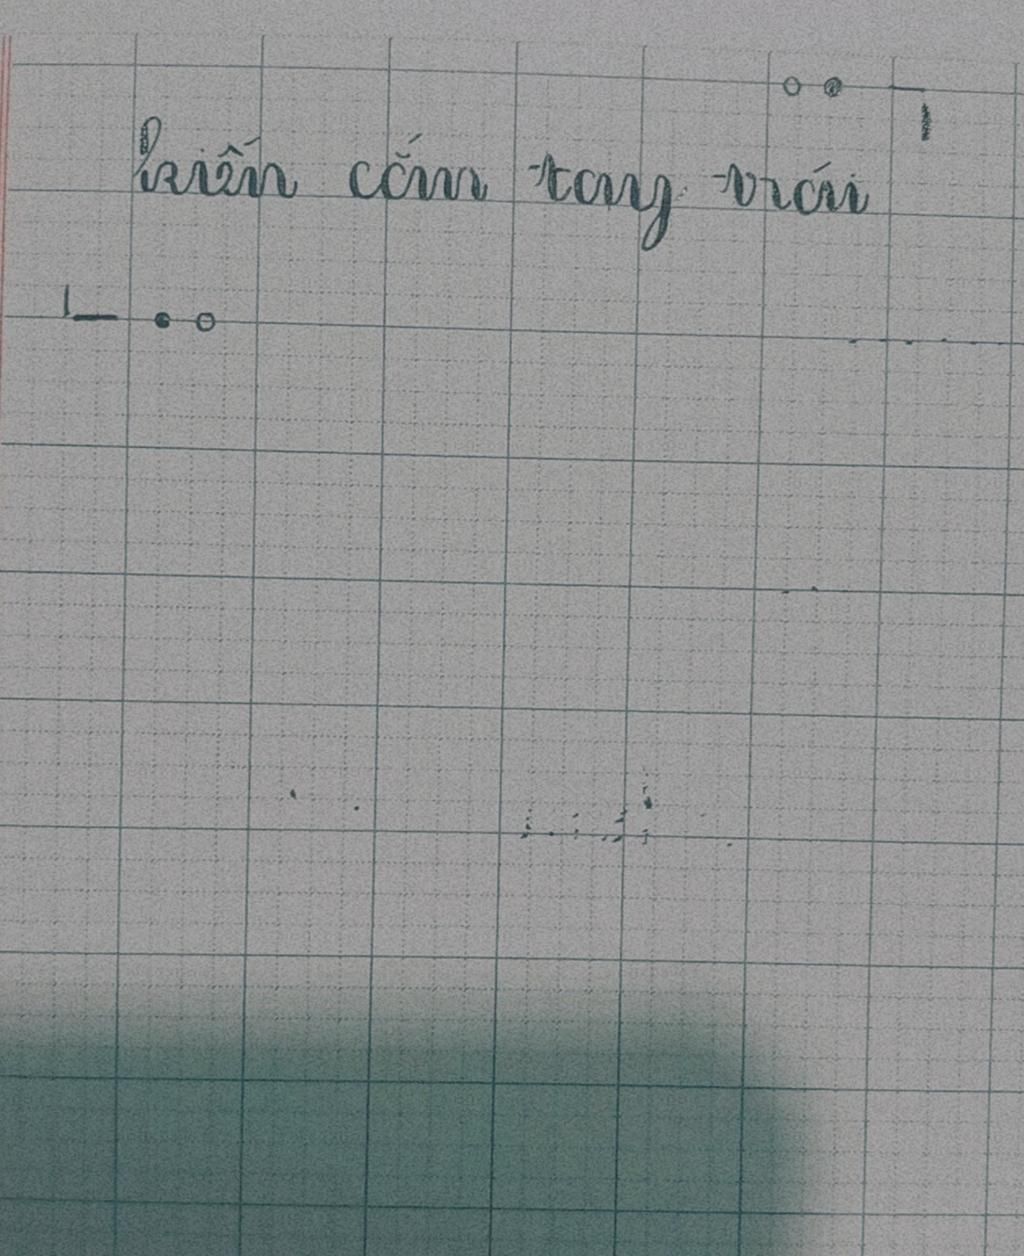 kiến cắn tay trái